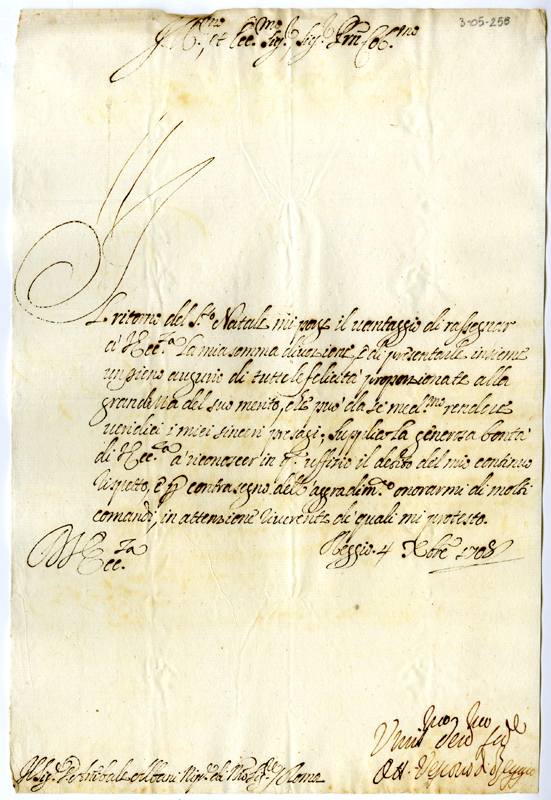 3-05-256
Ill.mo et Ecc.mo Sig.r Sig.r Pron Col.mo
Il ritorno del S.to Natale mi porge il vantaggio di rassegnar
à V. Ecc.za la mia somma divozione, è di presentarle insieme
un pieno augurio di tutte le felicità proporzionate alla
grandezza del suo merito, che può da se med.mo rendere
veridici i miei sinceri presagi; Supplico la generosa bontà
di V. Ecc.za à riconoscer in q.to uffizio il debito del mio continuo
rispetto, è p contrasegno dell'aggradim.to onorarmi di molti
comandi, in attenzione riverente di quali mi protesto.
D V. Ecc.za Reggio 4 Xbre 1708
Um.mo Dev.mo
Ott. Vescovo di Reggio
Albani Nip.e di Roma